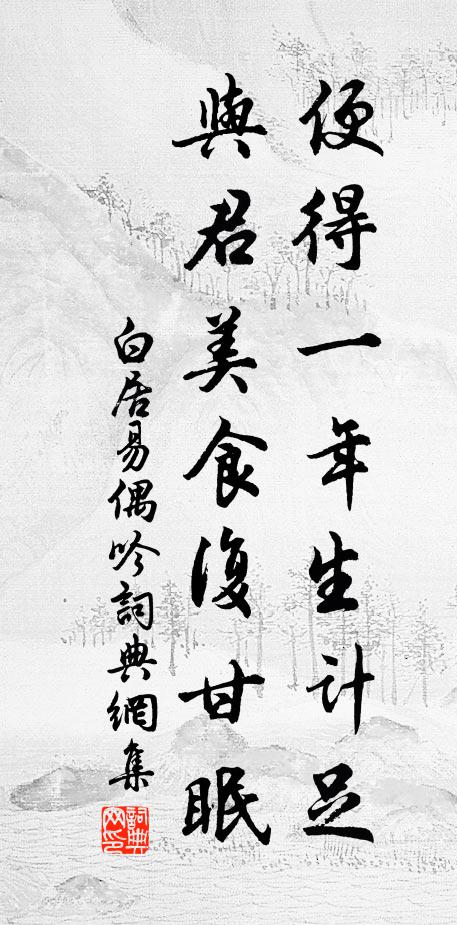 便得一年生計足
與君美食復甘眠
白居易偶吟詞典網集
詞典網印